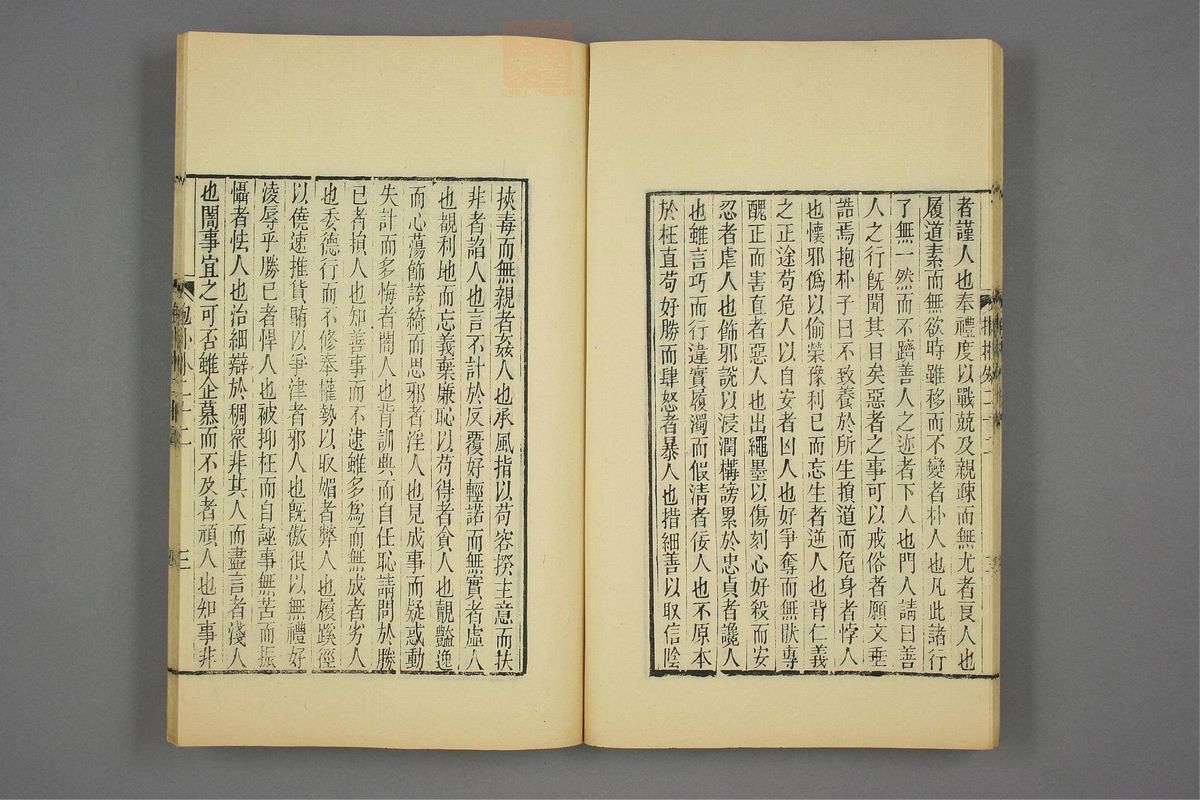 者謹人也奉禮度以戰兢及親疎而無尤者良人也
履道素而無欲時雖移而不變者朴人也凡此諸行
了無一然而不躋善人之迹者下人也門人請曰善
人之行既聞其目矣惡者之事可以戒俗者願文垂
誥焉抱朴子曰不致養於所生損道而危身者悖人
也懷邪僞以偷榮豫利己而忘生者逆人也背仁義
之正途苟危人以自安者凶人也好爭奪而無猒專
醜正而害直者惡人也出繩墨以傷刻心好殺而安
忍者虐人也飾邪說以浸潤構謗累於忠貞者讒人
也雖言巧而行違實履濁而假清者佞人也不原本
於枉直苟好勝而肆怒者暴人也措細善以取信陰
挾毒而無親者姦人也承風指以苟容揆主意而扶
非者諂人也言不計於反覆好輕諾而無實者虛人
也覩利地而忘義棄廉恥以苟得者貪人也覿豔逸
而心蕩飾誇綺而思邪者淫人也見成事而疑惑動
失計而多悔者闇人也背訓典而自任恥請問於勝
己者損人也知善事而不逮雖多爲而無成者劣人
也委德行而不修奉權勢以取媚者弊人也履蹊徑
以僥速推貨賄以爭津者邪人也既傲很以無禮好
淩辱乎勝己者悍人也被抑枉而自誣事無苦而振
懾者怯人也治細辯於稠衆非其人而盡言者淺人
也闇事宜之可否雖企慕而不及者頑人也知事非
二十二
三